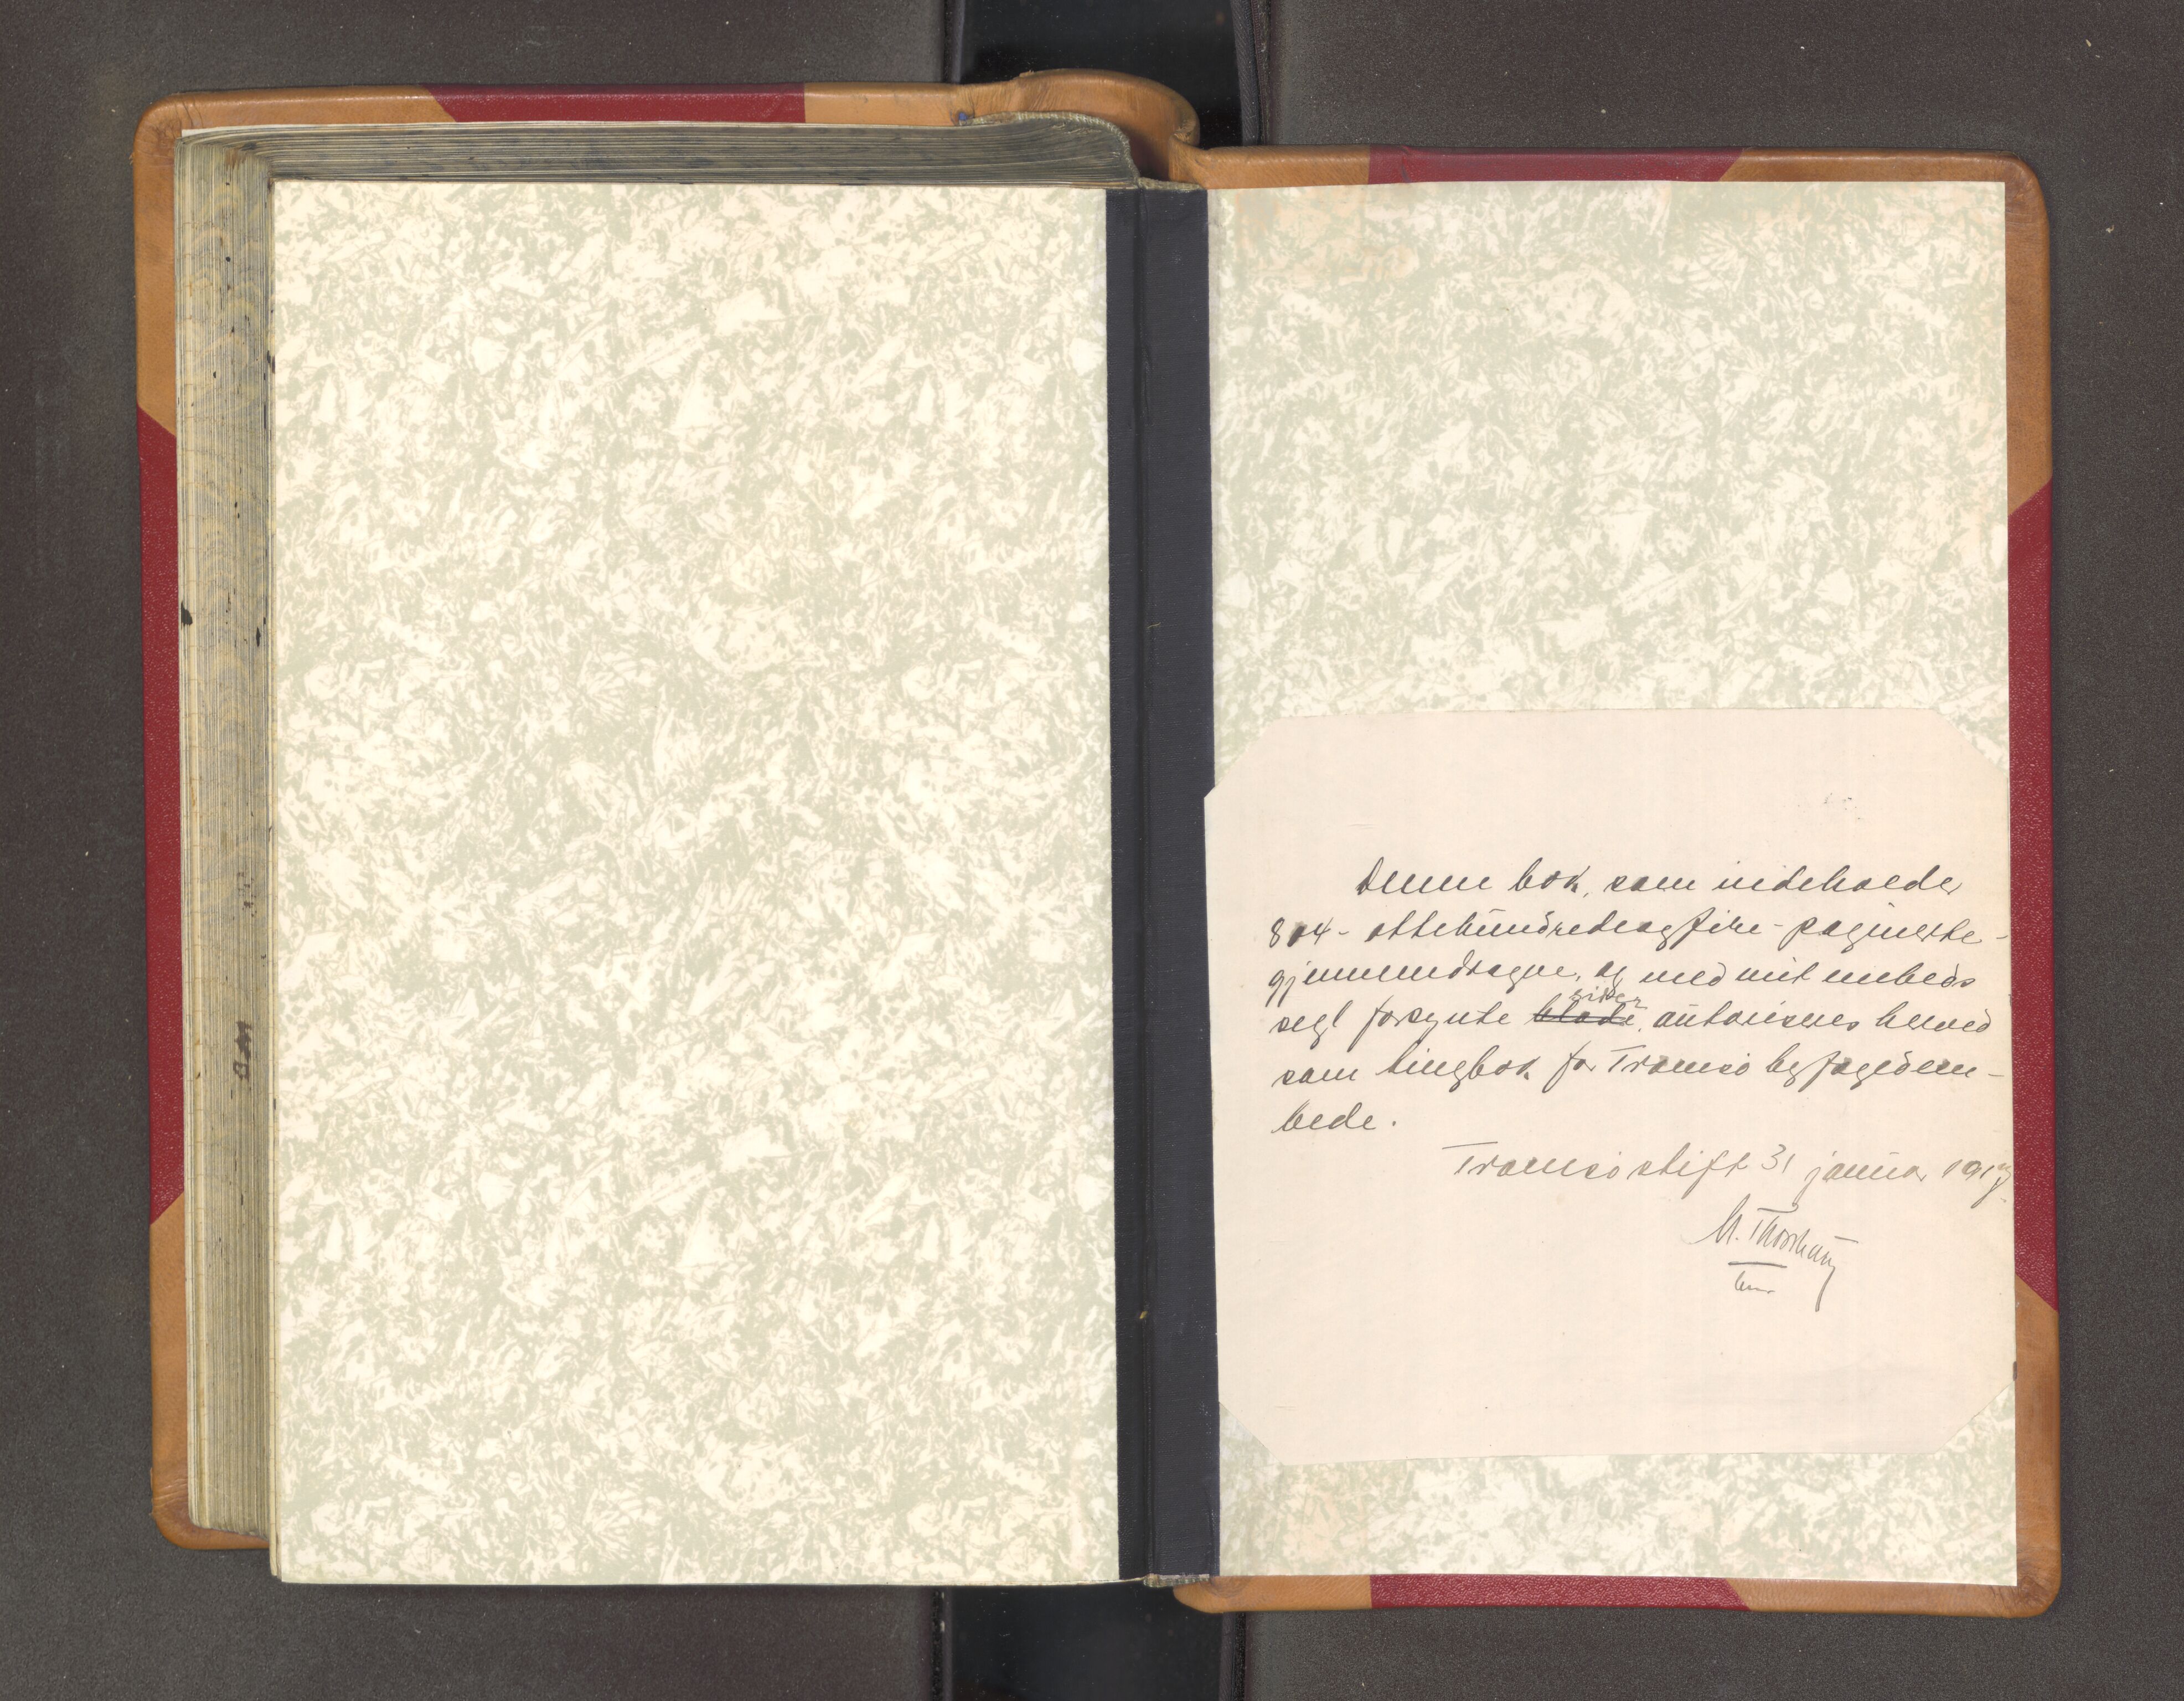 Denne bok, som indeholder
804 - ottehundredeogfire - paginerte -
gjennemdragne, og med mit embeds
segl forsynte blade sider, autoriseres herved
som tingbok for Tromsø byfogedem-
bede.
Tromsø stift 31 januar 1917